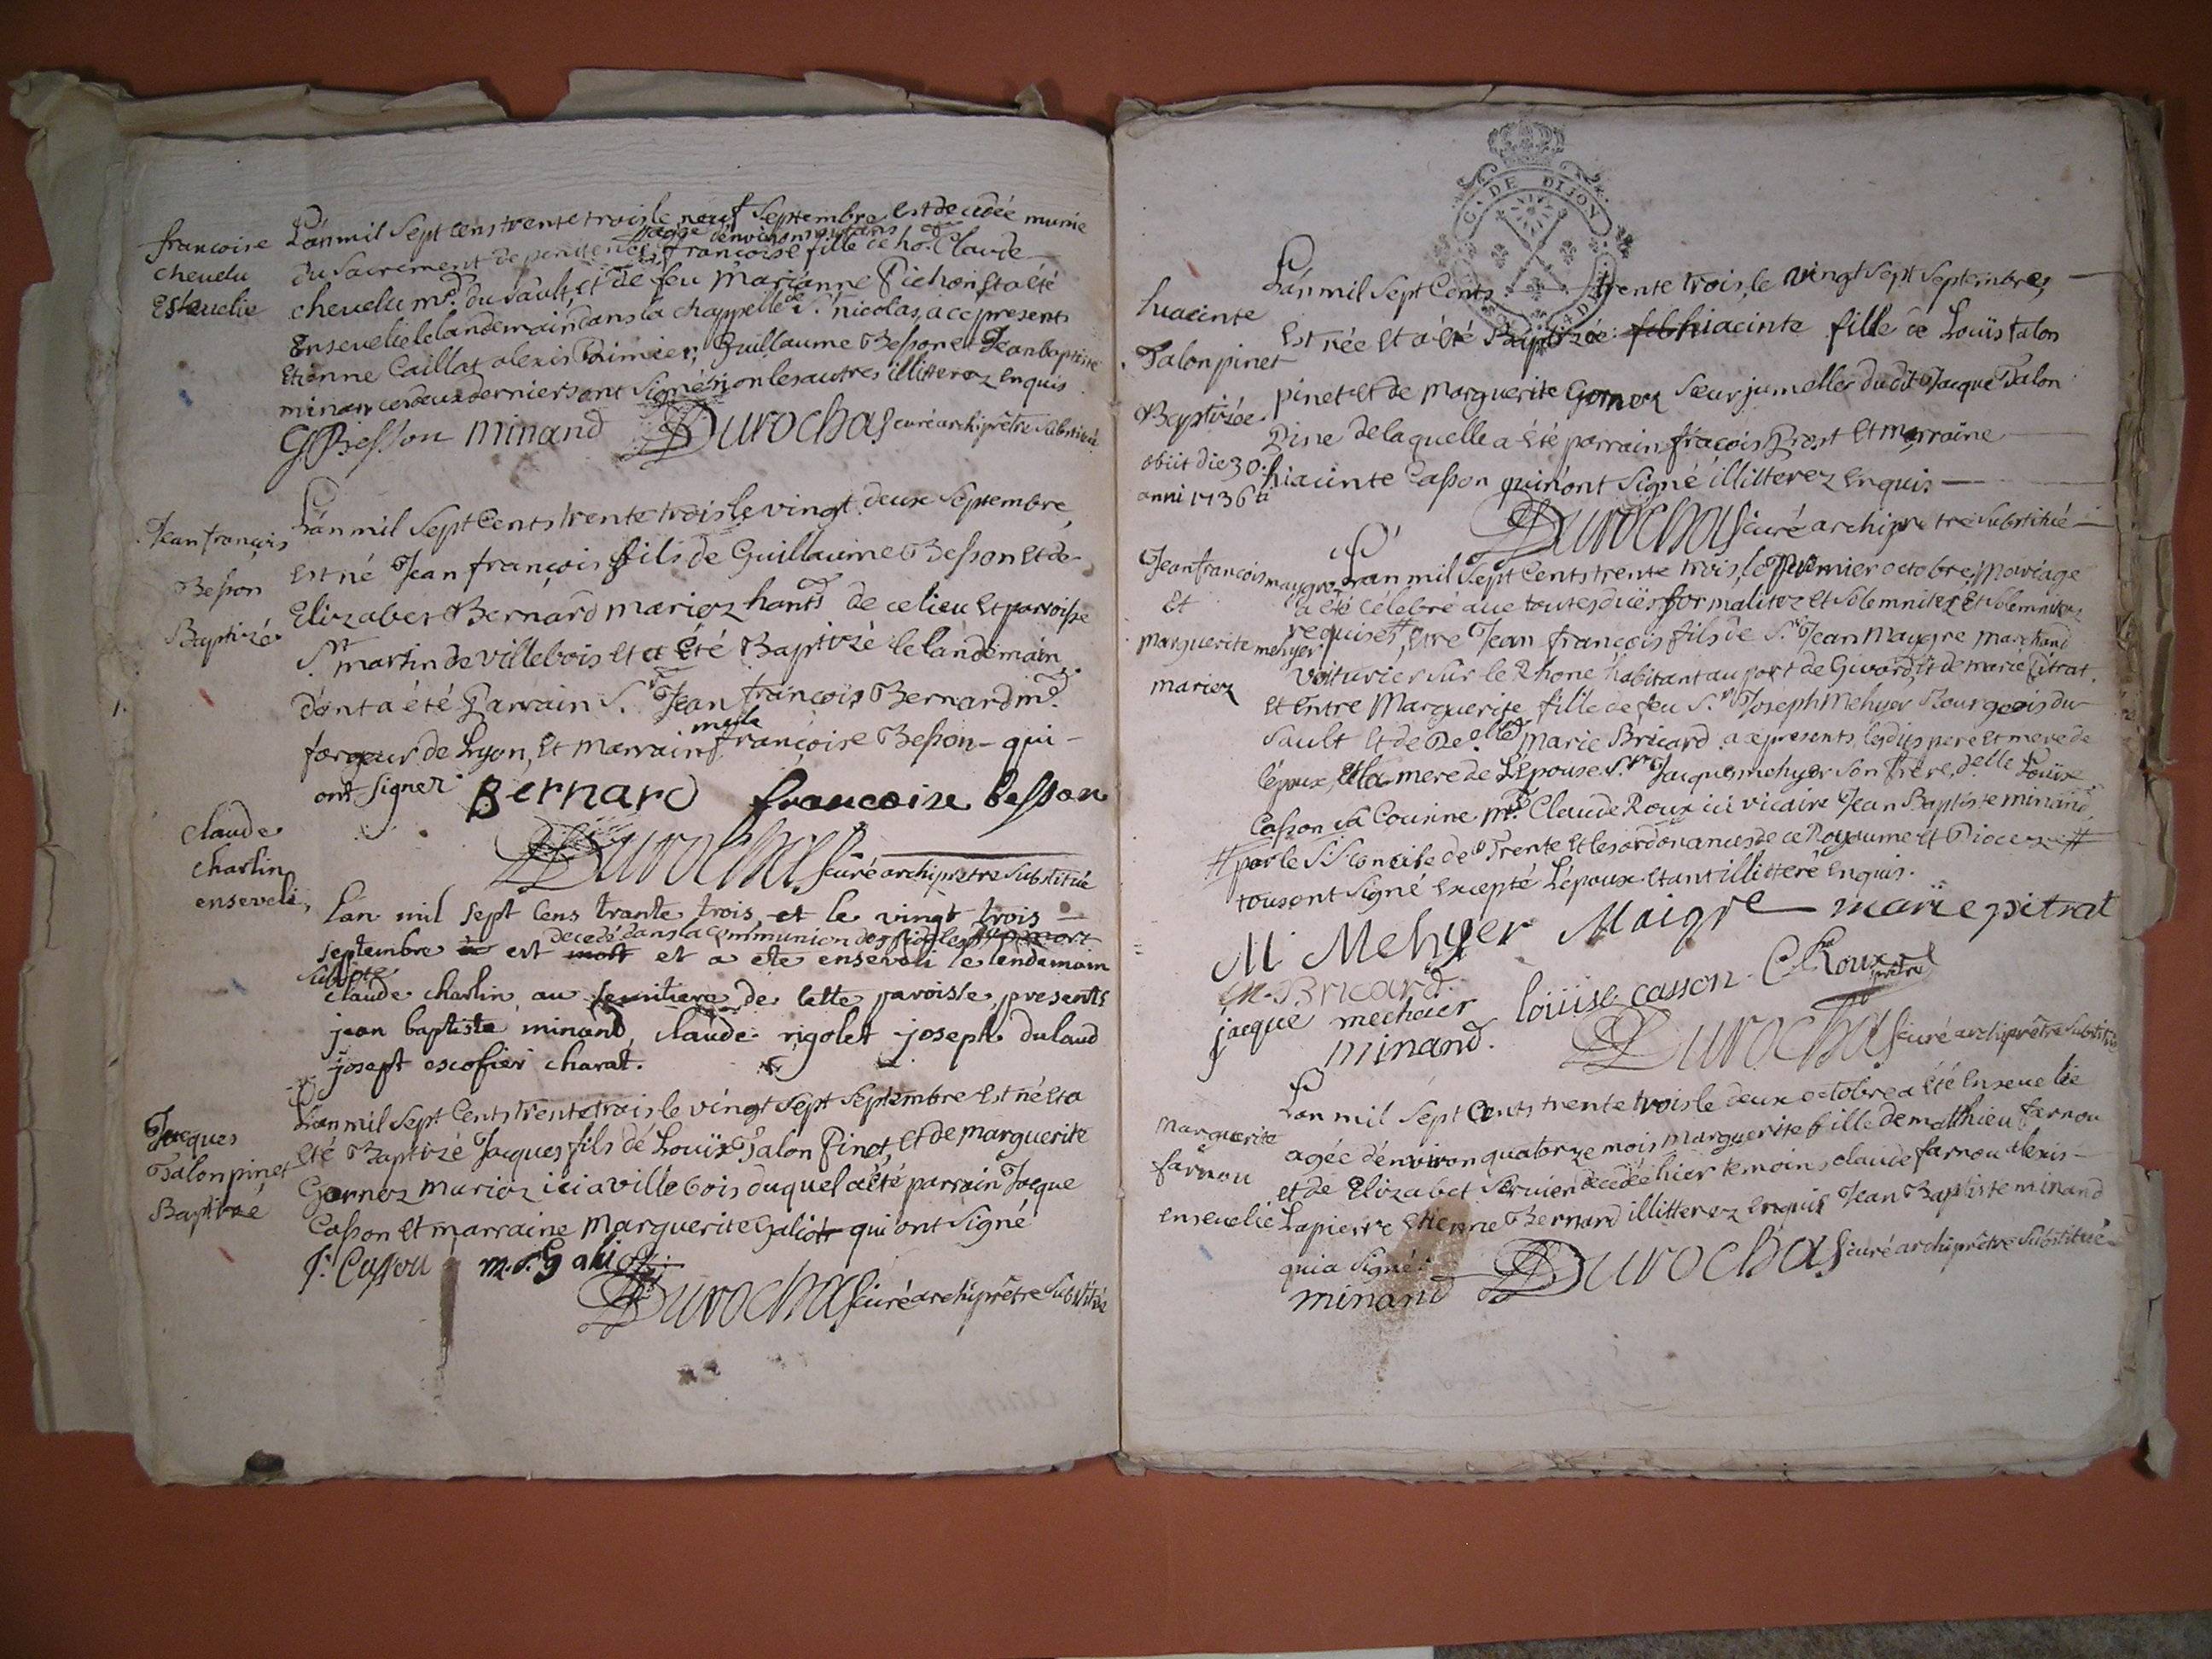 francoise
chevelu
Ensevelie
L'an mil Sept cens trente trois le neuf Septembre est decedée munie
du Sacrement de penitence agée d'environ ans francoise fille de ho. Claude
chevelu md. du Sault, et de feu Marianne Pichon et a été
Ensevelie le landemain dans la chappelle de St. nicolas, a ce presents
Etienne Caillat alexis Guillaume Besson et Jean baptiste
minan ces deux derniers ont Signé non les autres illitterez enquis
G Besson minand Durochas curé archiprêtre Substitué
Jean françois
Besson
Baptizé
L'an mil Sept Cents trente trois le vingt deux Septembre
est né Jean françois fils de Guillaume Besson et de
Elizabet Bernard mariez hants de ce lieu et parroisse
St. martin de villebois et a été Baptizé le landemain
dont a été Parrain Sr. Jean françois Bernard md.
forgeur de Lyon, et marraine melle françoise Besson - qui -
ont signer Bernard francoise besson
Durochas curé archipretre Substitué
claude
charlin
enseveli
Lan mil sept Cens trante trois et le vingt trois
septembre est decedé dans la communion des fidelles mort et a ete enseveli le lendemain
claude charlin au semitiere de cette paroisse, presents
jean baptiste minand, claude rigolet joseph dulaud
josept escofier charat.
Jacques
Talon pinet
Baptizé
L'an mil Sept Cents trente trois le vingt Sept Septembre est né et a
été Baptizé Jacques fils de Louïs Talon Pinet, et de marguerite
Gornoz mariez ici a villebois duquel a été parrain Jacque
Casson et marraine marguerite Galiot qui ont Signé
J. Casson m. Galiot
Durochas curé archiprêtre Substitué
G. DE DIJON
huacinte
Talon pinet
Baptizée
obiit die 30.
anni 1736 ti
L'an mil Sept Cents trente trois, le vingt Sept Septembre,
est née et a été Baptizée: hiacinte fille de Louïs talon
pinet et de Marguerite Gornoz Sœur jumelle dudit Jacque Talon
Pine de laquelle a été parrain fraçois Prost et marraine
hiacinte Casson qui n'ont Signé illitterez enquis
Durochas curé archipretre Substitué
Jean francois maygre
Et
marguerite mehyer
mariez
L'an mil Sept Cents trente trois, le Premier octobre, Mariage
a été célebré avec toutes duës formalitez et Solemnitez et Solemnitez
requises # entre Jean françois fils de Sr. Jean Maygre marchand
voiturier Sur le Rhone habitant au port de Givord, et de marie Pitrat.
et entre Marguerite fille de feu Sr. Joseph Mehyer Bourgeois du
Sault et de De elle Marie Bricard, a ce presents, lesdits pere et mere de
l'époux, et la mere de L'Epouse Sr. Jacques mehyer Son frere, delle Louïse
Casson Sa Cousine mr. Claude Roux ici vicaire Jean Baptiste minand
# par le St Concile de Trente et les ordonances de ce Royaume et Diocez #
tous ont Signé excepté L'époux etant illitteré enquis.
M Mehyer Maigre marie pitrat
m. Bricard
jacque mechaer loüise casson C Roux prêtre
minand. Durochas curé archiprêtre Substitué
marguerite
farnou
ensevelie
L'an mil Sept Cents trente trois le deux octobre a été ensevelie
agée d'environ quatorze mois Marguerite fille de matthieu farnou
et de Elizabet Servier decedée hier temoins claude farnou alexis
Lapierre Etienne Bernard illitterez enquis Jean Baptiste minand
qui a Signé. Durochas curé archiprêtre Substitué
minand